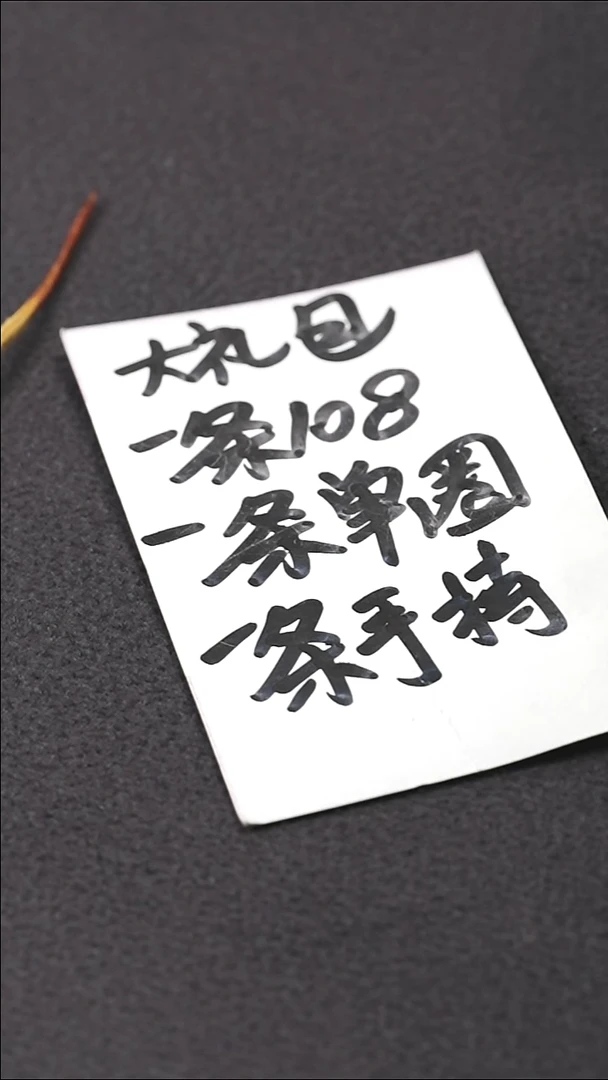 大礼包
一条108
一条单圈
一条手持